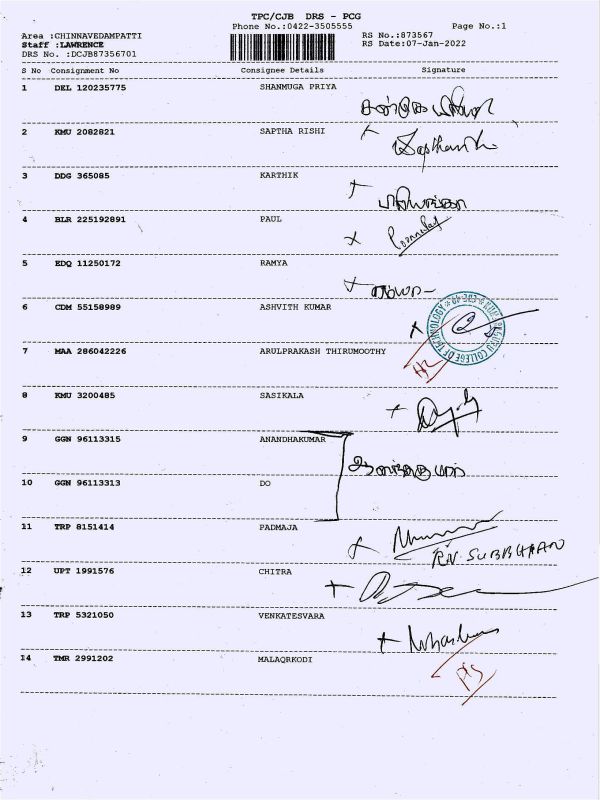 TPC/CJB DRS - PCG
Phone No.:0422-3505555
Page No.:1
Area :CHINNAVEDAMPATTI
Staff :LAWRENCE
DRS No. :DCJB87356701
RS No.:873567
RS Date:07-Jan-2022
S No Consignment No Consignee Details Signature
1 DEL 120235775 SHANMUGA PRIYA
2 KMU 2082821 SAPTHA RISHI
3 DDG 365085 KARTHIK
4 BLR 225192891 PAUL
5 EDQ 11250172 RAMYA
6 CDM 55158989 ASHVITH KUMAR
7 MAA 286042226 ARULPRAKASH THIRUMOOTHY
8 KMU 3200485 SASIKALA
9 GGN 96113315 ANANDHAKUMAR
10 GGN 96113313 DO
11 TRP 8151414 PADMAJA
RN. SUBBHAAN
12 UPT 1991576 CHITRA
13 TRP 5321050 VENKATESVARA
14 TMR 2991202 MALAQRKODI